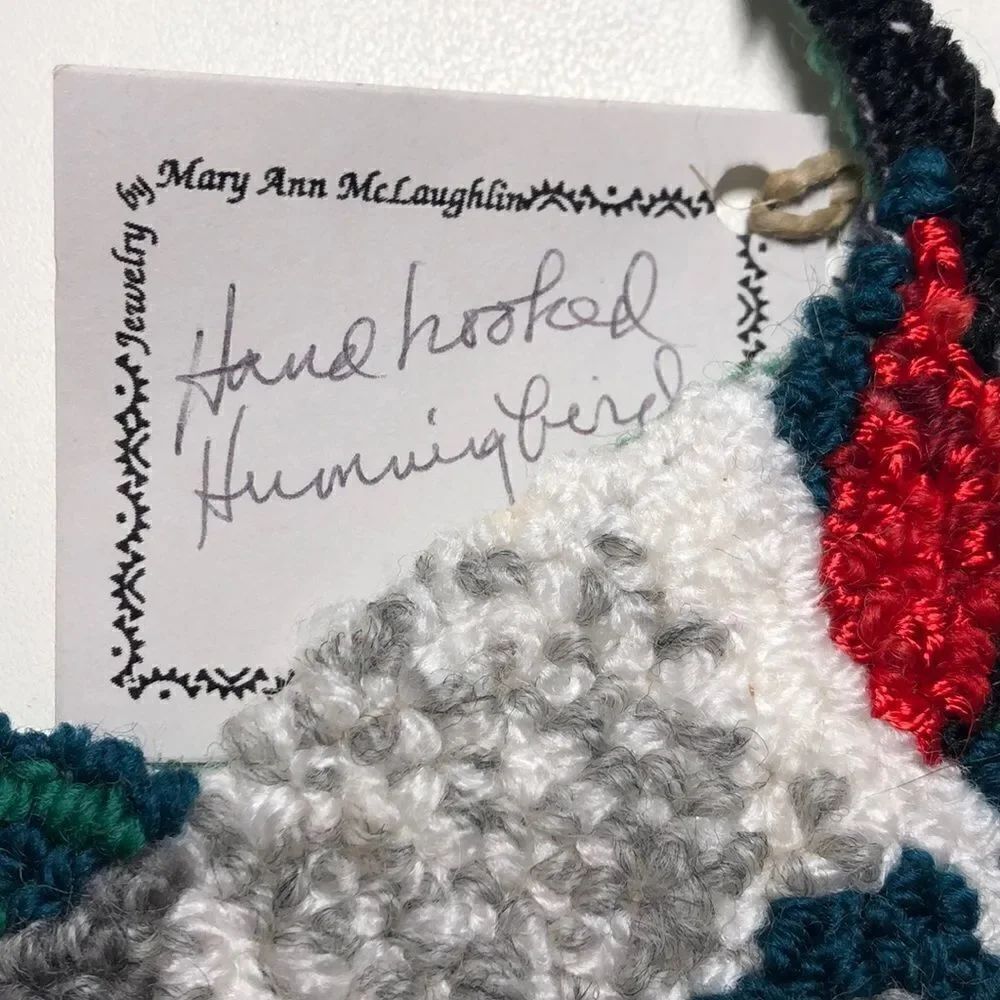 Jewelry by Mary Ann McLaughlin
Hand hooked
Hummingbird